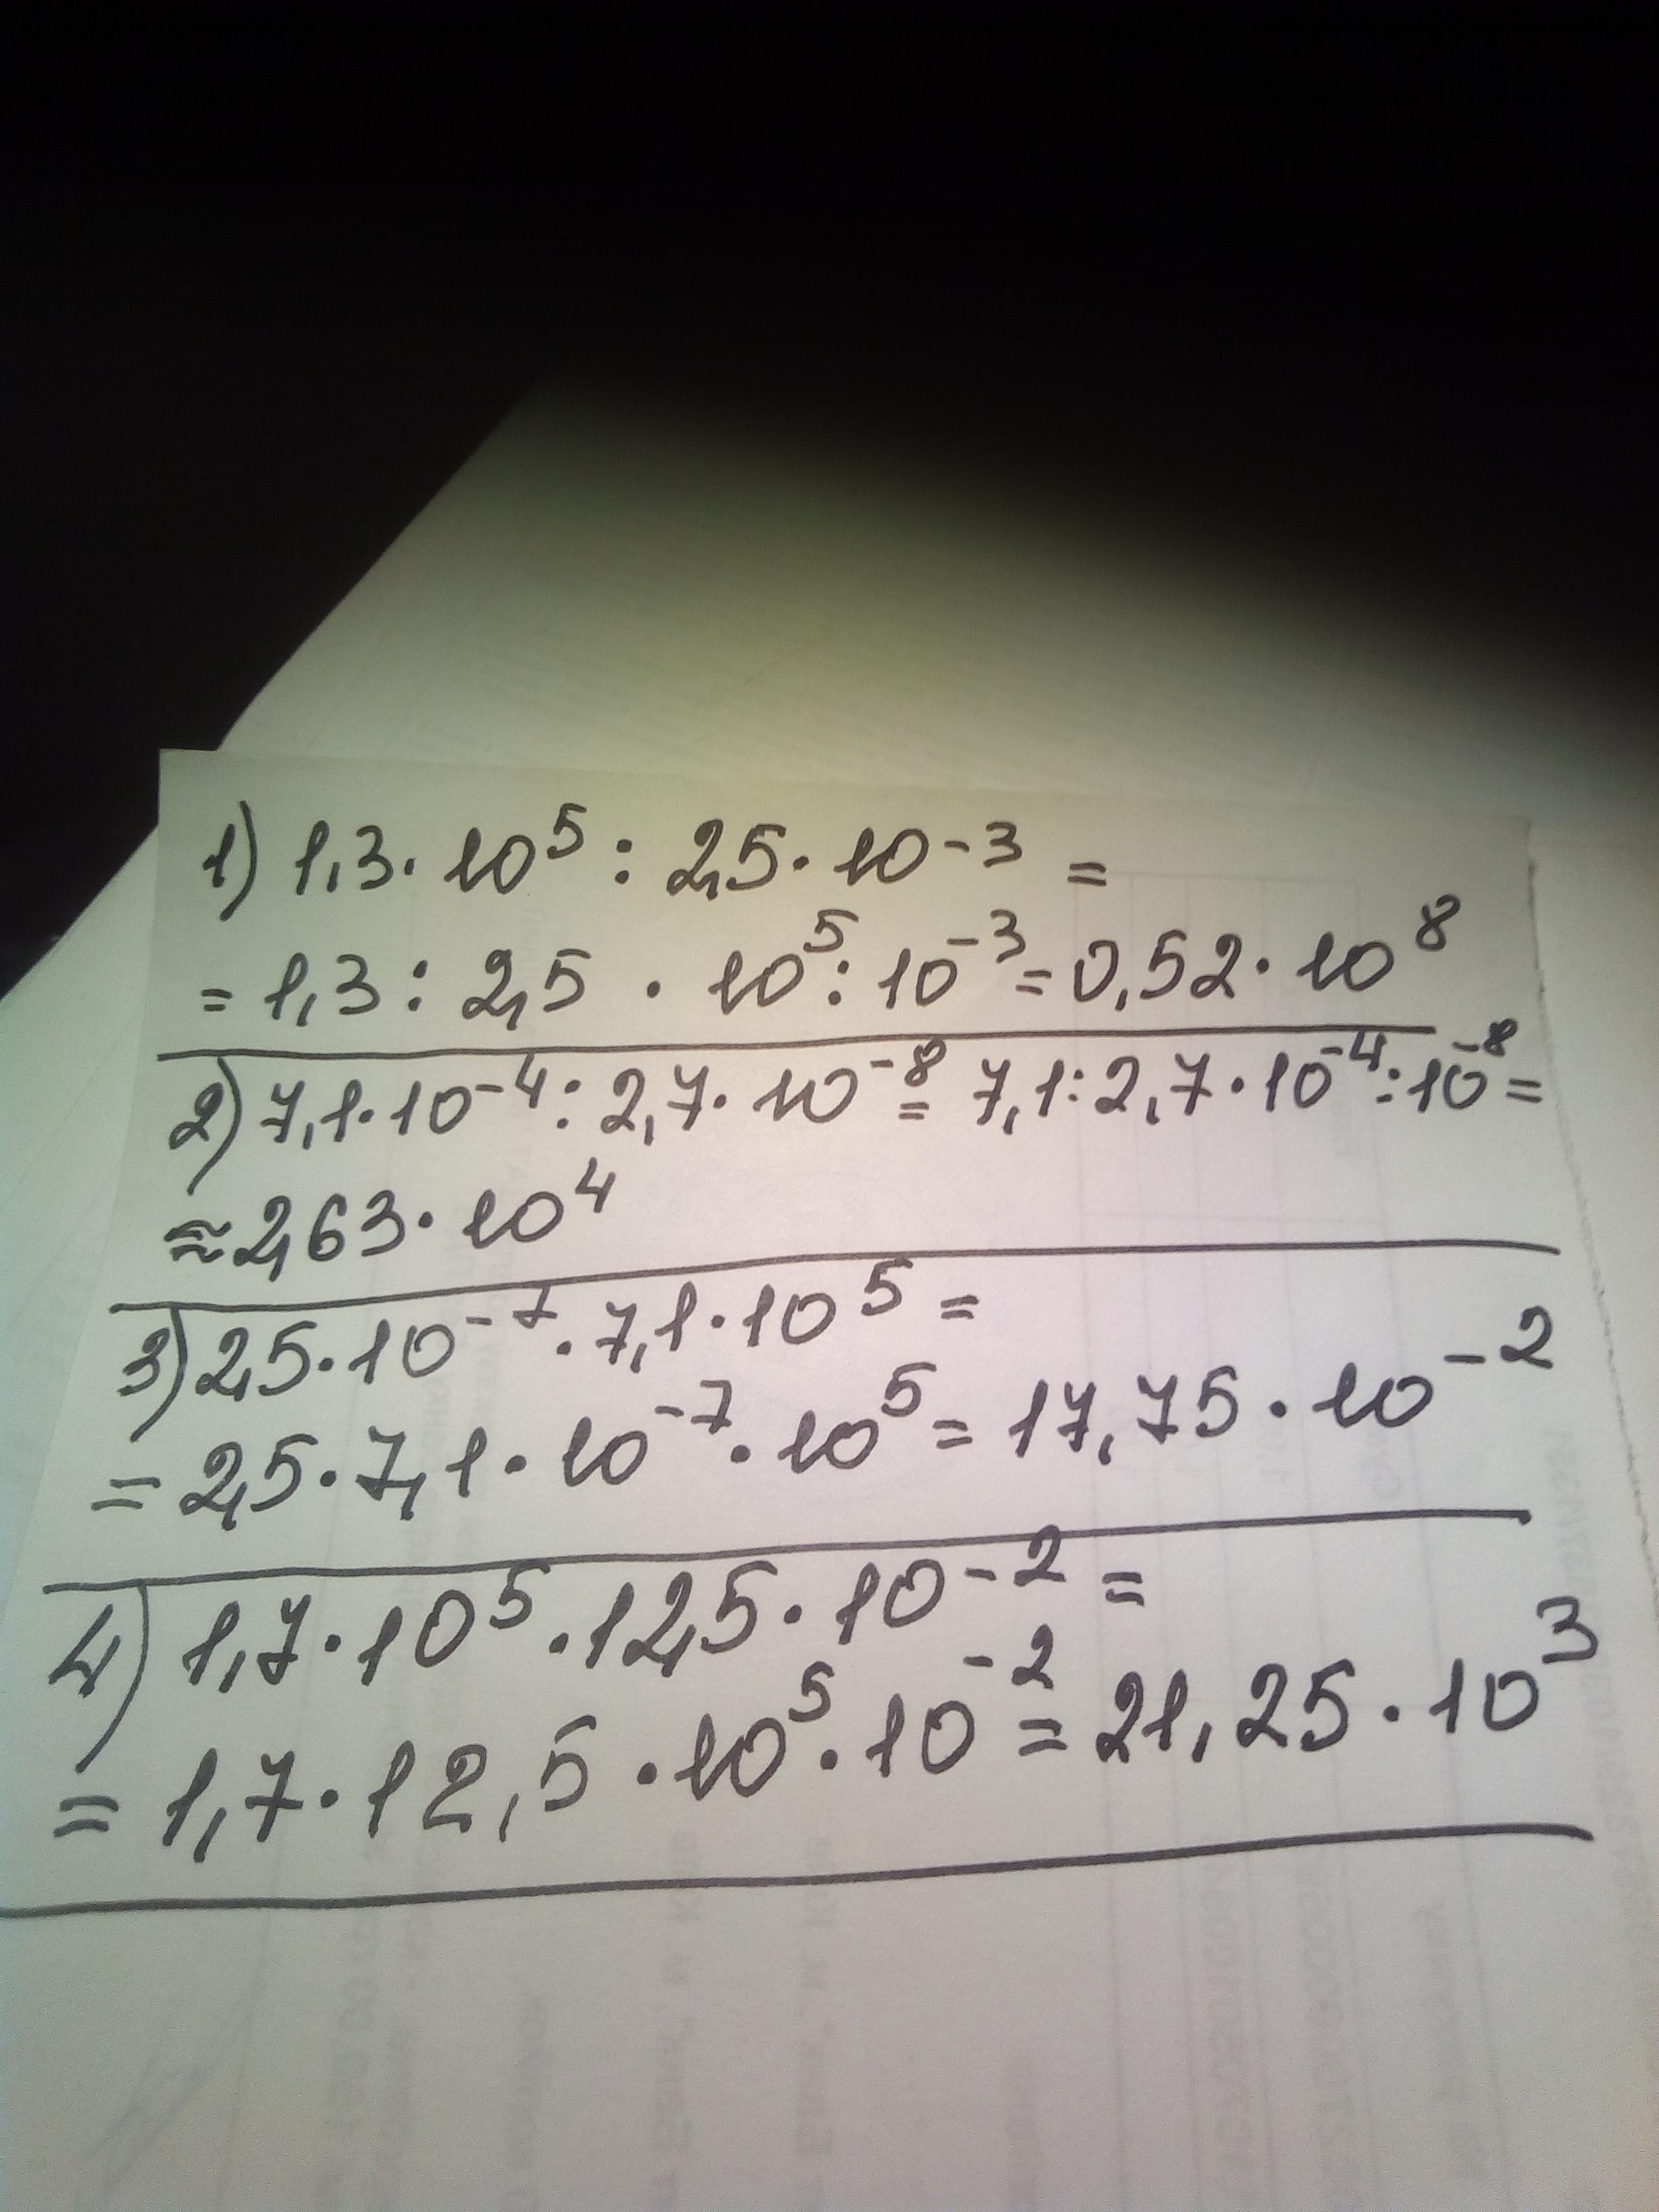 1) 1,3·10⁵ : 2,5·10⁻³ =
= 1,3 : 2,5 · 10⁵ : 10⁻³ = 0,52·10⁸
2) 7,1·10⁻⁴ : 2,7·10⁻⁸ = 7,1 : 2,7·10⁻⁴ : 10⁻⁸ =
≈ 2,63·10⁴
3) 2,5·10⁻⁷·7,1·10⁵ =
= 2,5·7,1·10⁻⁷·10⁵ = 17,75·10⁻²
4) 1,7·10⁵·12,5·10⁻² =
= 1,7·12,5·10⁵·10⁻² = 21,25·10³